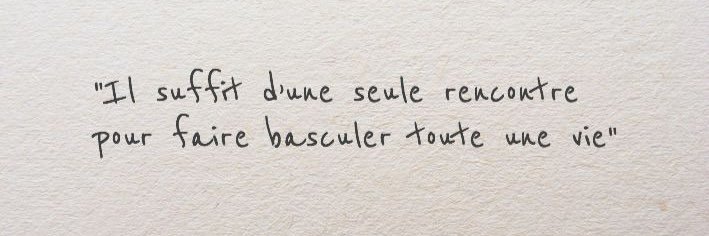 "Il suffit d'une seule rencontre
pour faire basculer toute une vie"